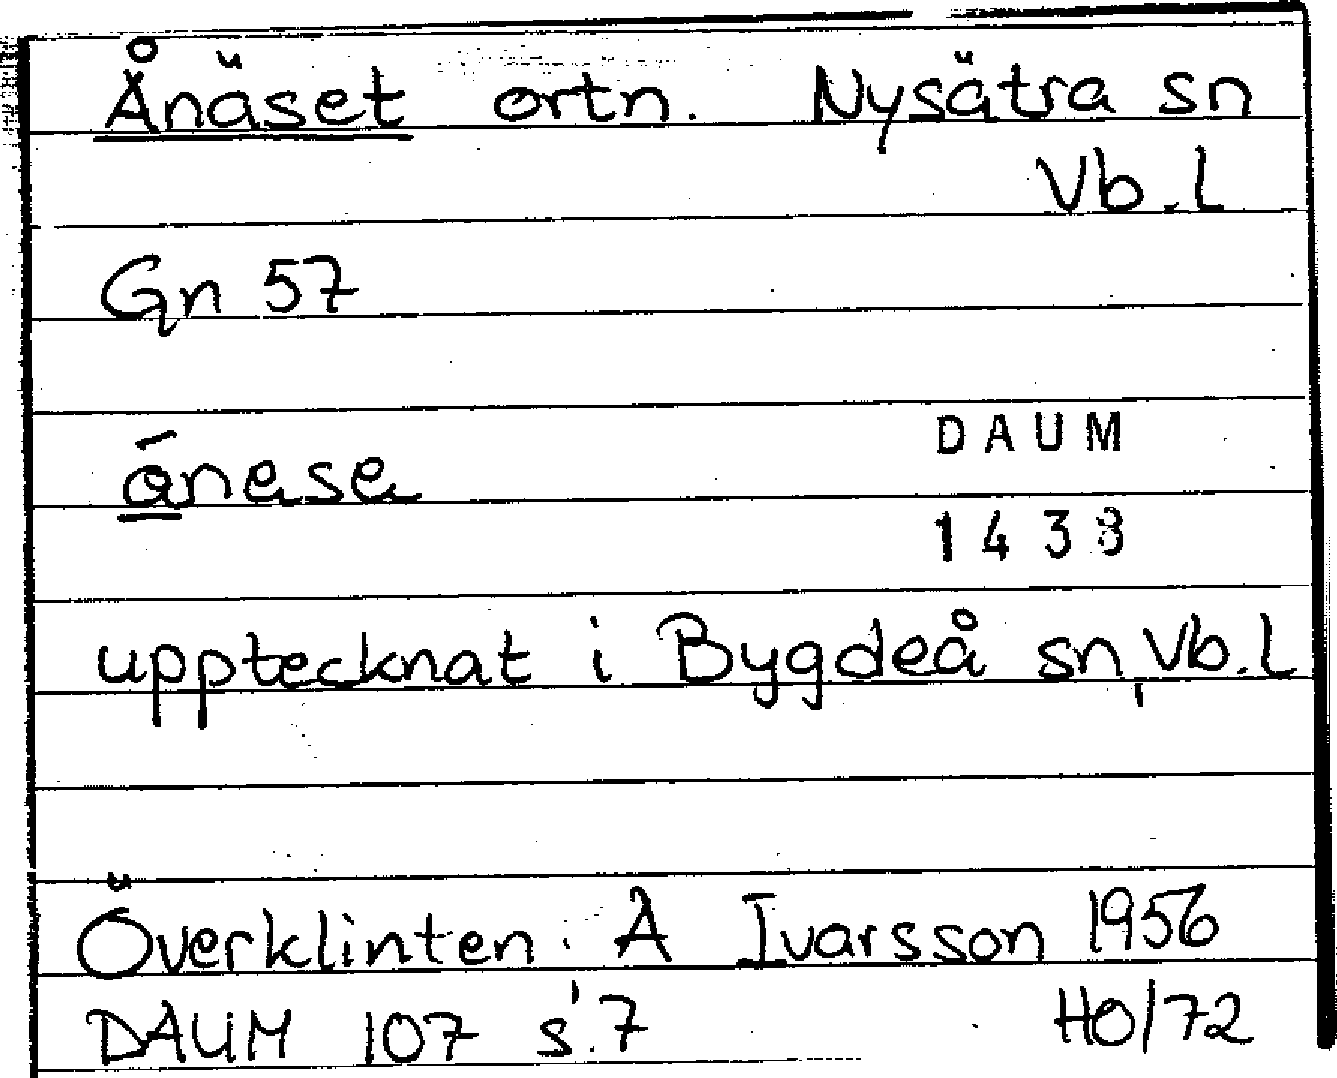 Ånäset ortn. Nysätra sn
Vb.L
Gn 57
DAUM
ånese
1438
upptecknat i Bygdeå sn, Vb.L
Överklinten. A Ivarsson 1956
DAUM 107 s. 7 HO/72